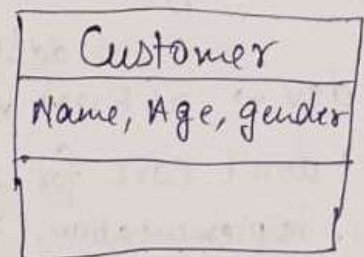 Customer
Name, Age, gender